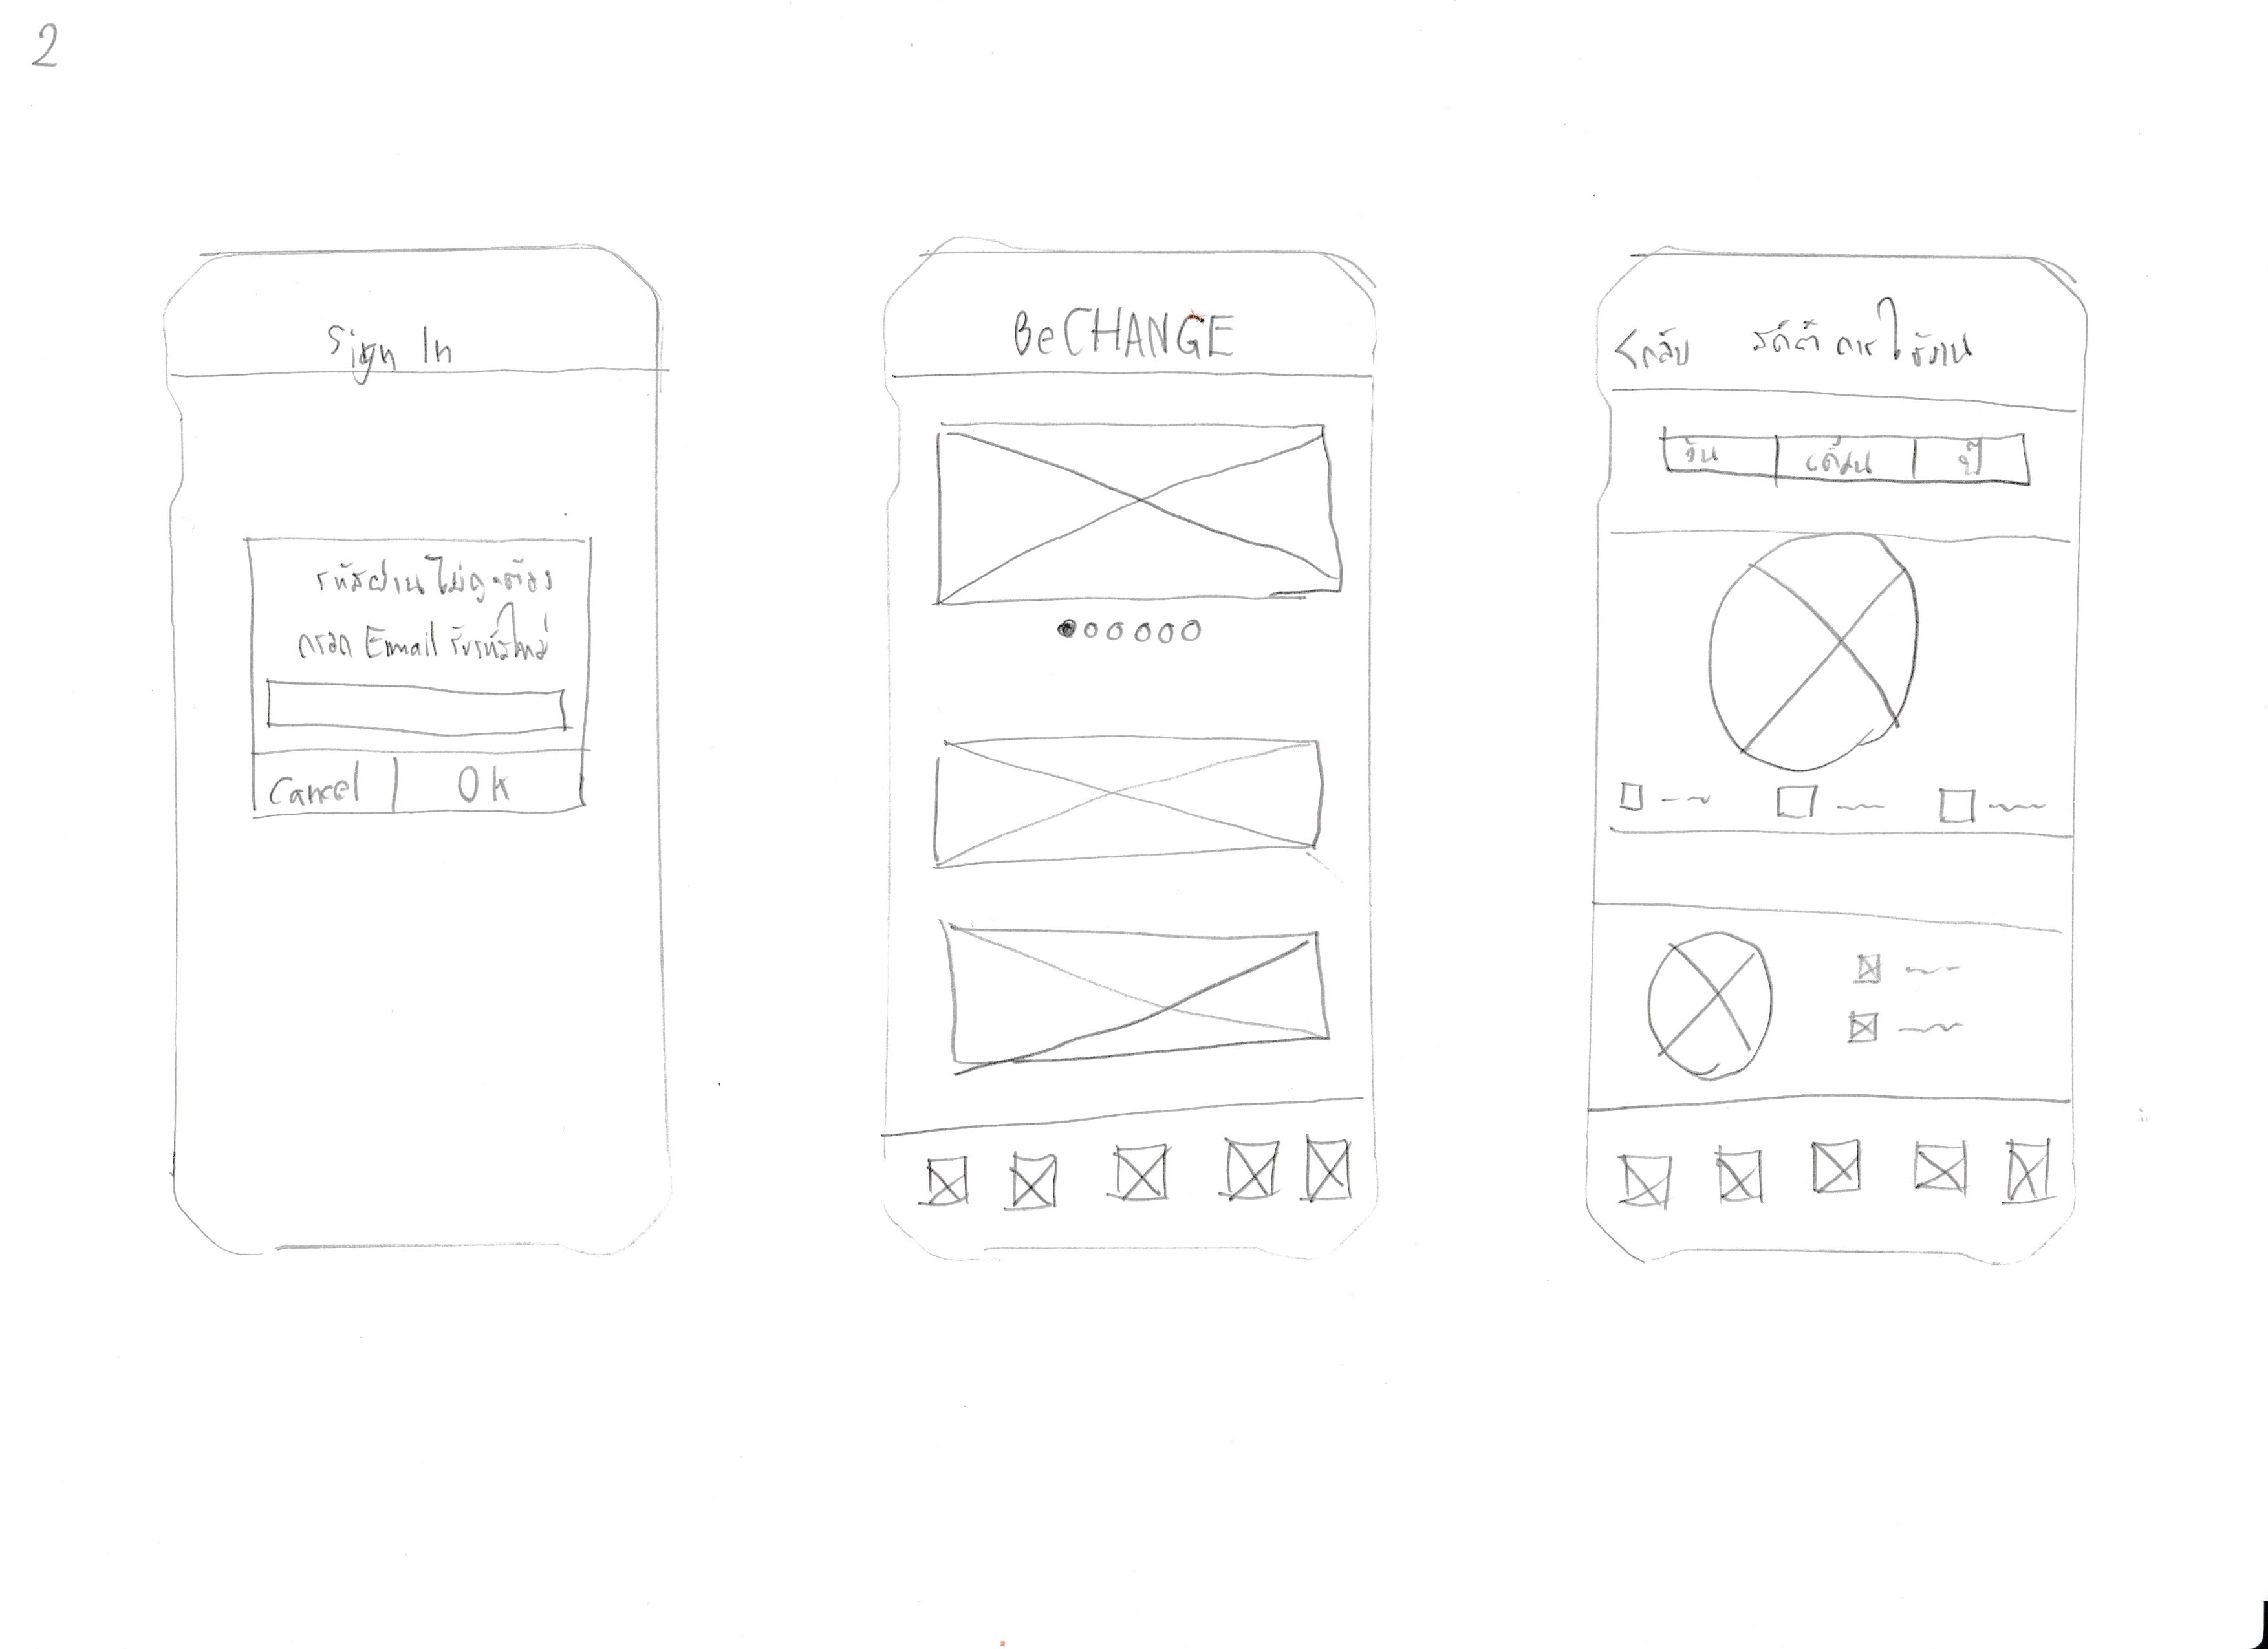 2
Sign In
รหัสผ่านไม่ถูกต้อง
กรอก Email รับรหัสใหม่
Cancel
OK
BeCHANGE
<กลับ สถิติการใช้งาน
วัน
เดือน
ปี